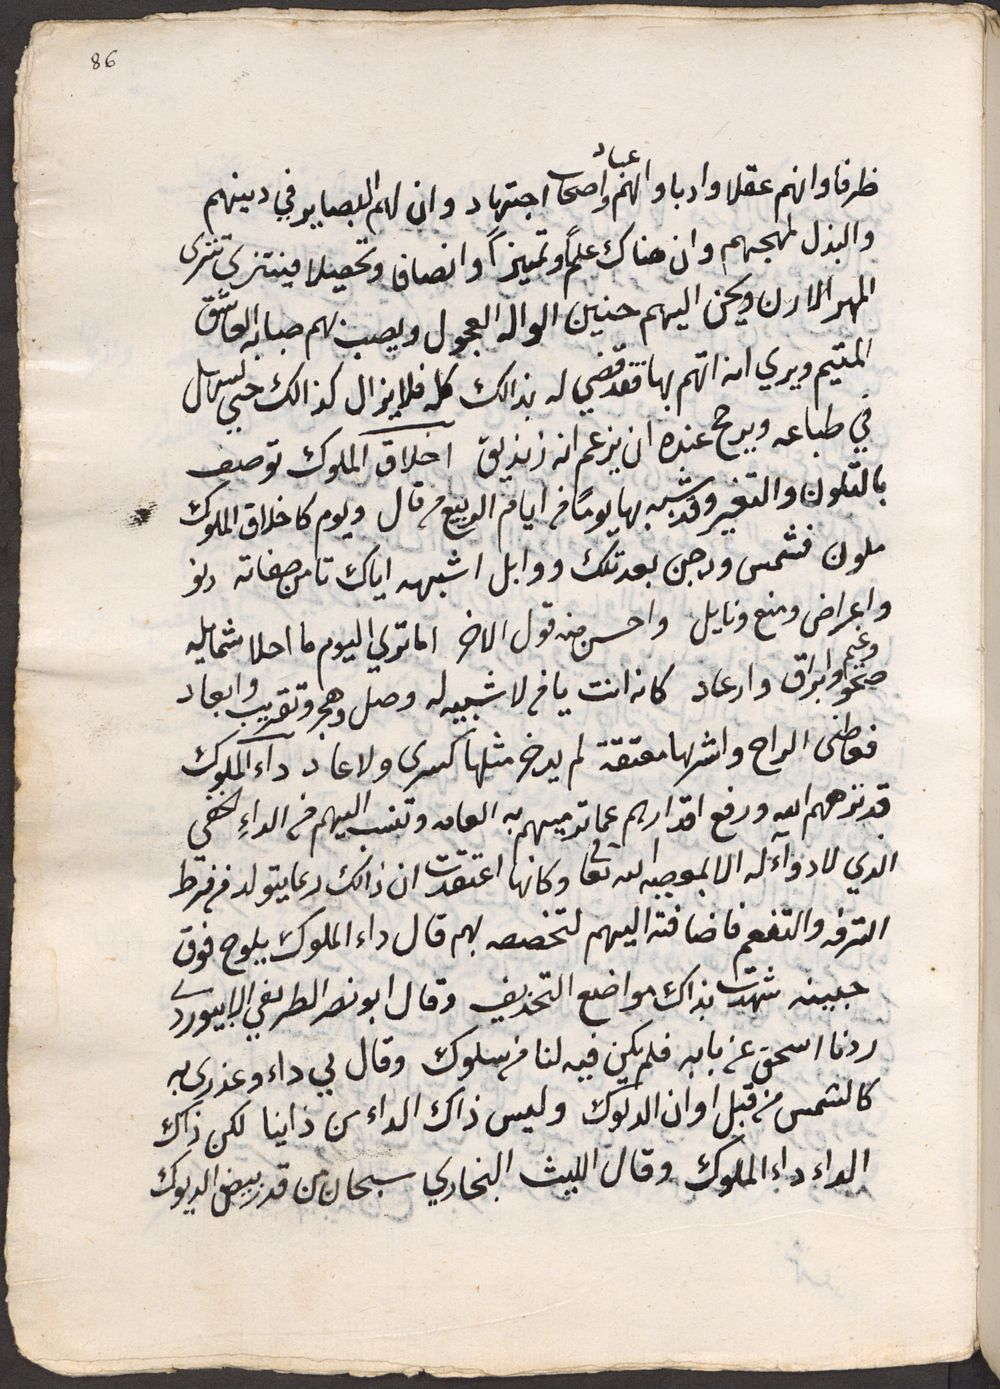 86
ظرفا وانهم عقلا وادبا وانهم عباد واصحاب اجتهاد وان لهم البصاير في دينهم
والبذل لمهجهم وان هناك علماً وتميزاً وانصافا وتحصيلا فينتزي تنزى
المهر الارن ويحن اليهم حنين الواله العجول ويصب لهم صبابه العاشق
المتيم ويري انه اتهم بها فقد قضي له بذالك كله فلايزال كذالك حتي ليسهل
في طباعه ويرجح عنده ان يزعم انه زنديق اخلاق الملوك توصف
بالتلون والتغير وقد شبه بها يوماً من ايام الربيع من قال ويوم كاخلاق الملوك
ملون فشمس ودجن بعد تلك ووابل اشبهه اياك تا من صفاته دنو
واعراض ومنع ونايل واحسن منه قول الاخر اما تري اليوم ما احلا شمايله
صحو وغيم وابراق وارعاد كانه انت يا من لا شبيه له وصل وهجر وتقريب وابعاد
فعاطني الراح واشربها معتقة لم يدخر مثلها كسرى ولا عاد داء الملوك
قد نزههم الله ورفع اقدارهم عما ترميهم به العامه وتنسب اليهم من الداءِ الخفي
الذي لا دوآء له الا بالموصيه الله تعالى وكانها اعتقدت ان ذالك ربما يتولد من فرط
الترفه والتنعم فاضافته اليهم لتخصصه بهم قال داء الملوك يلوح فوق
جبينه شهدت بذاك مواضع التحذيف وقال ابو نصر الطريفي الابيوردي
زرنا اسحق عن بابه فلم يكن فيه لنا من سلوك وقال بي داء وعذرى به
كالشمس من قبل اوان الدلوك وليس ذاك الداء من ذاينا لكن ذاك
الداء داء الملوك وقال الليث البخاري سبحان من قدر بيض الديوك